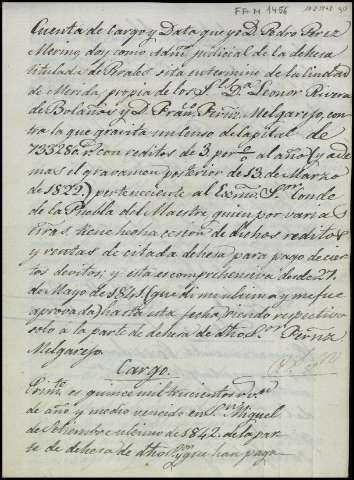 FA M 1456
Cuenta de Cargo y Data que yo D. Pedro Perez
Merino, doy como Adm.or judicial de la dehesa
titulada de Prabes sita en termino de la Ciudad
de Merida propia de los S.res D.a Leonor Rivera
de Bolaños y D. Fran.co Fernz. Melgarejo, con-
tra la que gravita un censo de Capital de
733280 r.s con reditos de 3, por % al año (y ade
mas el gravamen posterior de 13 de Marzo
de 1822) perteneciente al Exmo. S.or Conde
de la Puebla del Maestre, quien por varias
tiene hecha cesion de dichos reditos
y rentas de citada dehesa para pago de cier-
tos devitos; y esta es comprehensiva desde 27
de Mayo de 1841 (que di mi ultima y me fue
aprovada) hasta esta fecha, siendo respectiva
solo a la parte de dehesa de dho S.or Fernz
Melgarejo.
Cargo.
Primte. es quince mil trescientos r.s v.n
de año y medio vencido en S.n Miguel
de Setiembre ultimo de 1842. de la par-
te de dehesa de dho S.or que han paga-